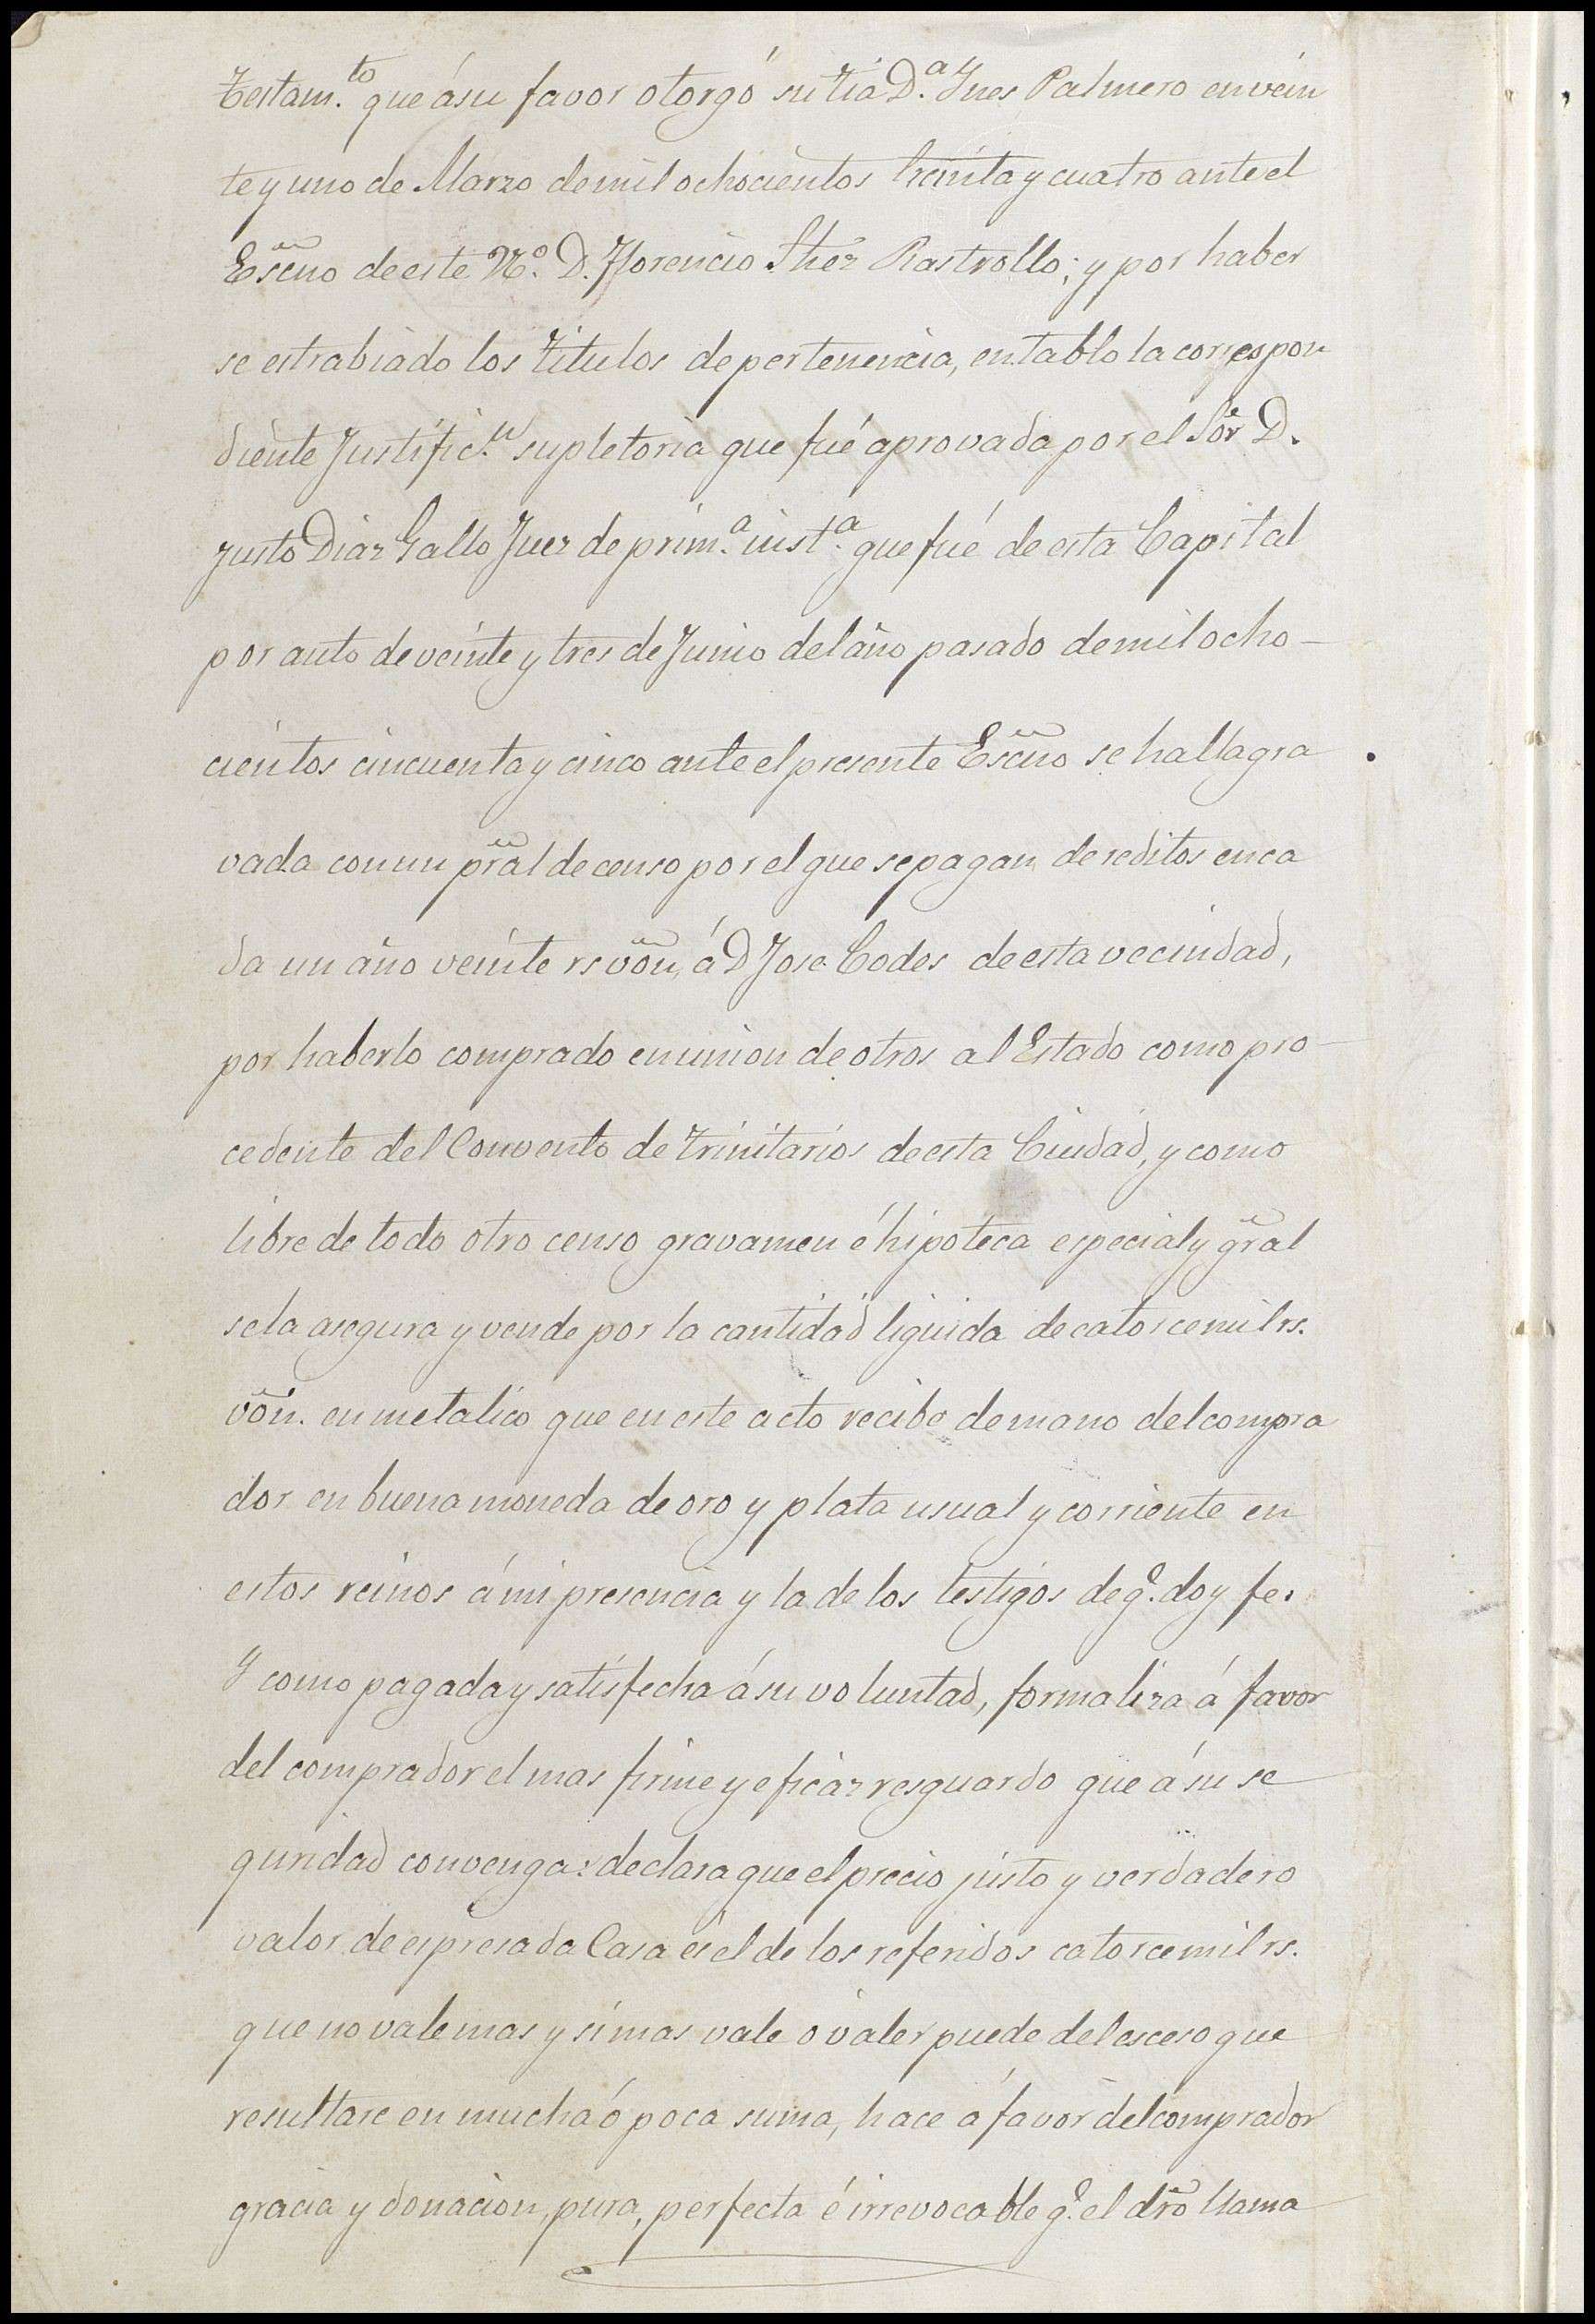 Testam.to que á su favor otorgó su tia D.a Ynes Palmero en vein
te y uno de Marzo de mil ochocientos treinta y cuatro ante el
Escño de este N.o D. Florencio Shez Rastrollo; y por haber
se estrabiado los titulos de pertenencia, entablo la correspon
diente Justific.n supletoria que fué aprovada por el Sõr D.
Justo Diaz Gallo Juez de prim.a inst.a que fué de esta Capital
por auto de veinte y tres de Junio del año pasado de mil ocho-
cientos cincuenta y cinco ante el presente Escño se halla gra
vada con un prãl de censo por el que se pagan de reditos en ca
da un año veinte rs võn, á D Jose Codes de esta vecindad,
por haberlo comprado en union de otros al Estado como pro-
cedente del Convento de Trinitarios de esta Ciudad, y como
libre de todo otro censo gravamen é hipoteca especial y grãl
se la asegura y vende por la cantidad liquida de catorce mil rs.
võn. en metalico que en este acto recibe de mano del compra
dor en buena moneda de oro y plata usual y corriente en
estos reinos á mi presencia y la de los testigos de q.e doy fe.
Y como pagada y satisfecha á su voluntad, formaliza á favor
del comprador el mas firme y eficaz resguardo que á su se
guridad convenga: declara que el precio justo y verdadero
valor de espresada Casa es el de los referidos catorce mil rs.
que no vale mas y si mas vale o valer puede del esceso que
resultare en mucha ó poca suma, hace á favor del comprador
gracia y donacion, pura, perfecta é irrevocable q.e el dřo llama